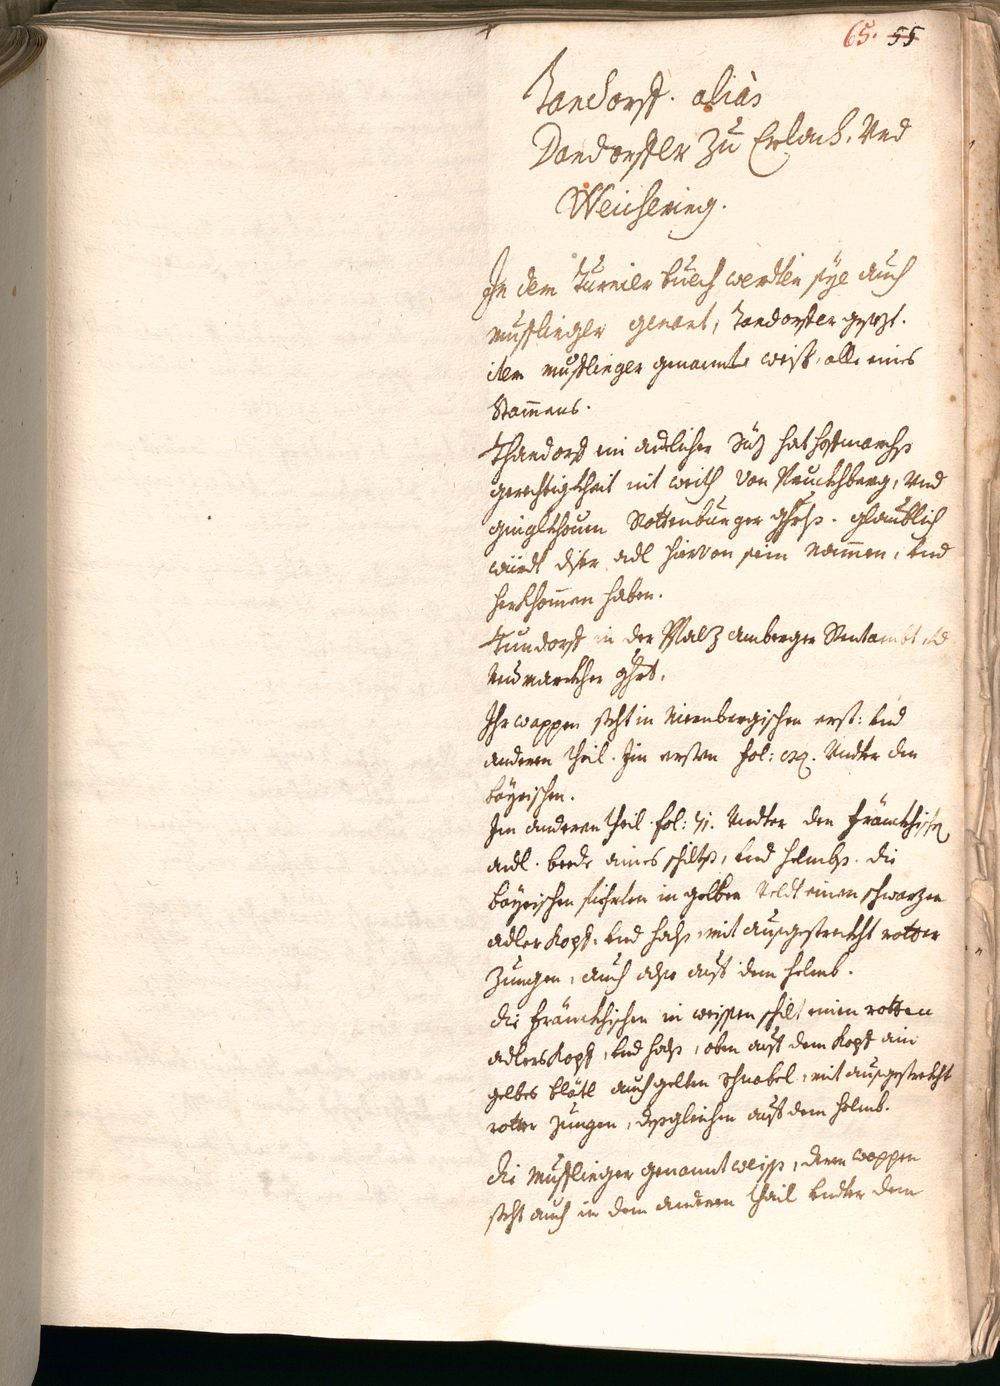 65. 55
Tandorff. aliàs
Dandorffer zu Erlach, Vnd
Weichering.
In dem Turnier buech werden sye auch
Mufflinger genant, Tandorffer gesezt.
item Mufflinger genannt weiß, alle eines
Stammens.
Thandorff ein adelicher Siz hat hofmarchs
gerechtigkheit nit weith von Pruckhberg, Vnd
Rottenburger ghrts. glaublich
würdt diser adl hiervon sein nammen, Vnd
herkhommen haben.
Tundorff in der Pfalz amberger Rentambt
Neumarckher ghrt.
Ihr wappen steht in Nirenbergischen erst: Vnd
anderen theil. Im ersten fol: Vndter den
bayrischen.
Im anderen theil fol: Vndter den fränckhischen
adl. beede aines schilts, Vnd helmbs. die
bayrischen fiehrten in gelben Veldt einen schwarzen
adler Kopf, Vnd halß, mit außgestreckht rotter
Zungen, auch also auf dem helmb.
die fränckhischen in weissen schilt einen rotten
adlers Kopff, Vnd halß, oben auf dem Kopf ain
gelbes blätl auch gelben schnabel, mit außgestreckht
rotter Zungen, desgleichen auf dem helmb.
die Mufflinger genannt weiß, deren wappen
steht auch in dem anderen theil Vndter dem